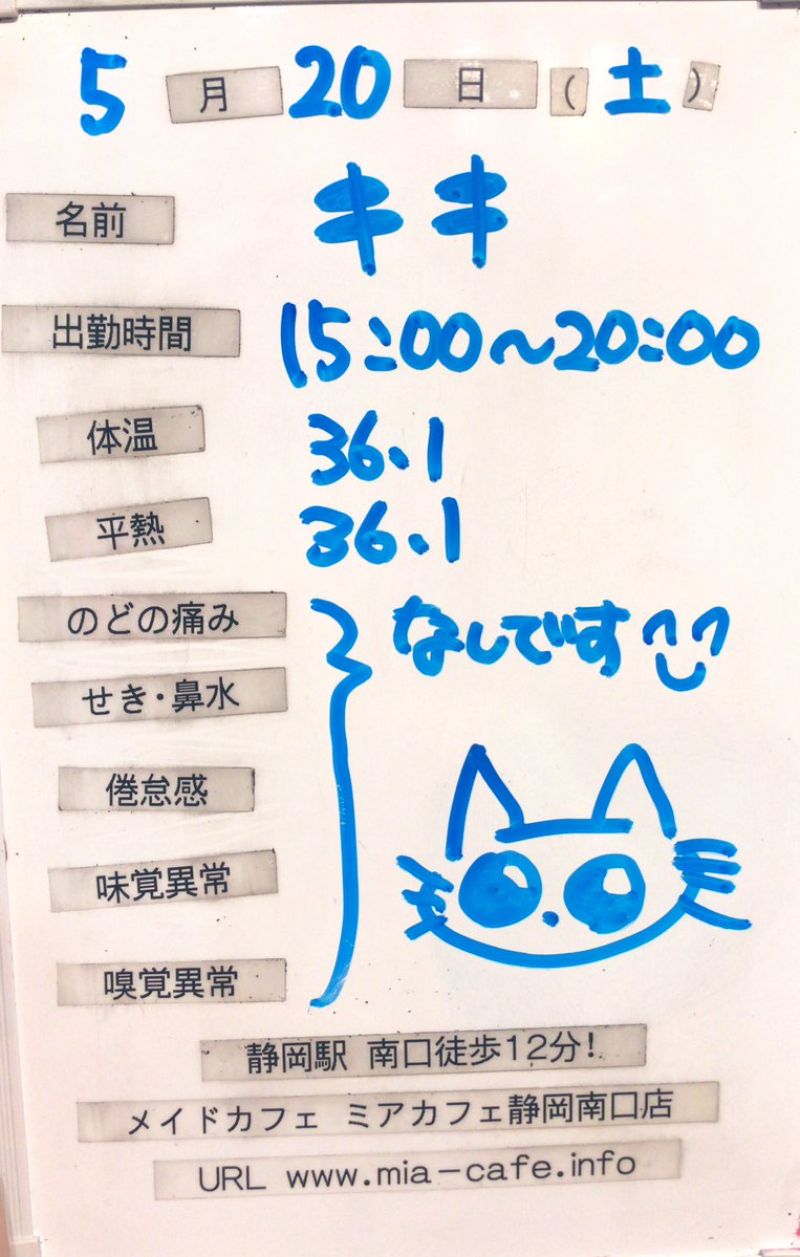 5月20日(土)
名前 キキ
出勤時間 15:00～20:00
体温 36.1
平熱 36.1
のどの痛み なしです
せき・鼻水
倦怠感
味覚異常
嗅覚異常
静岡駅 南口徒歩12分!
メイドカフェ ミアカフェ静岡南口店
URL www.mia-cafe.info